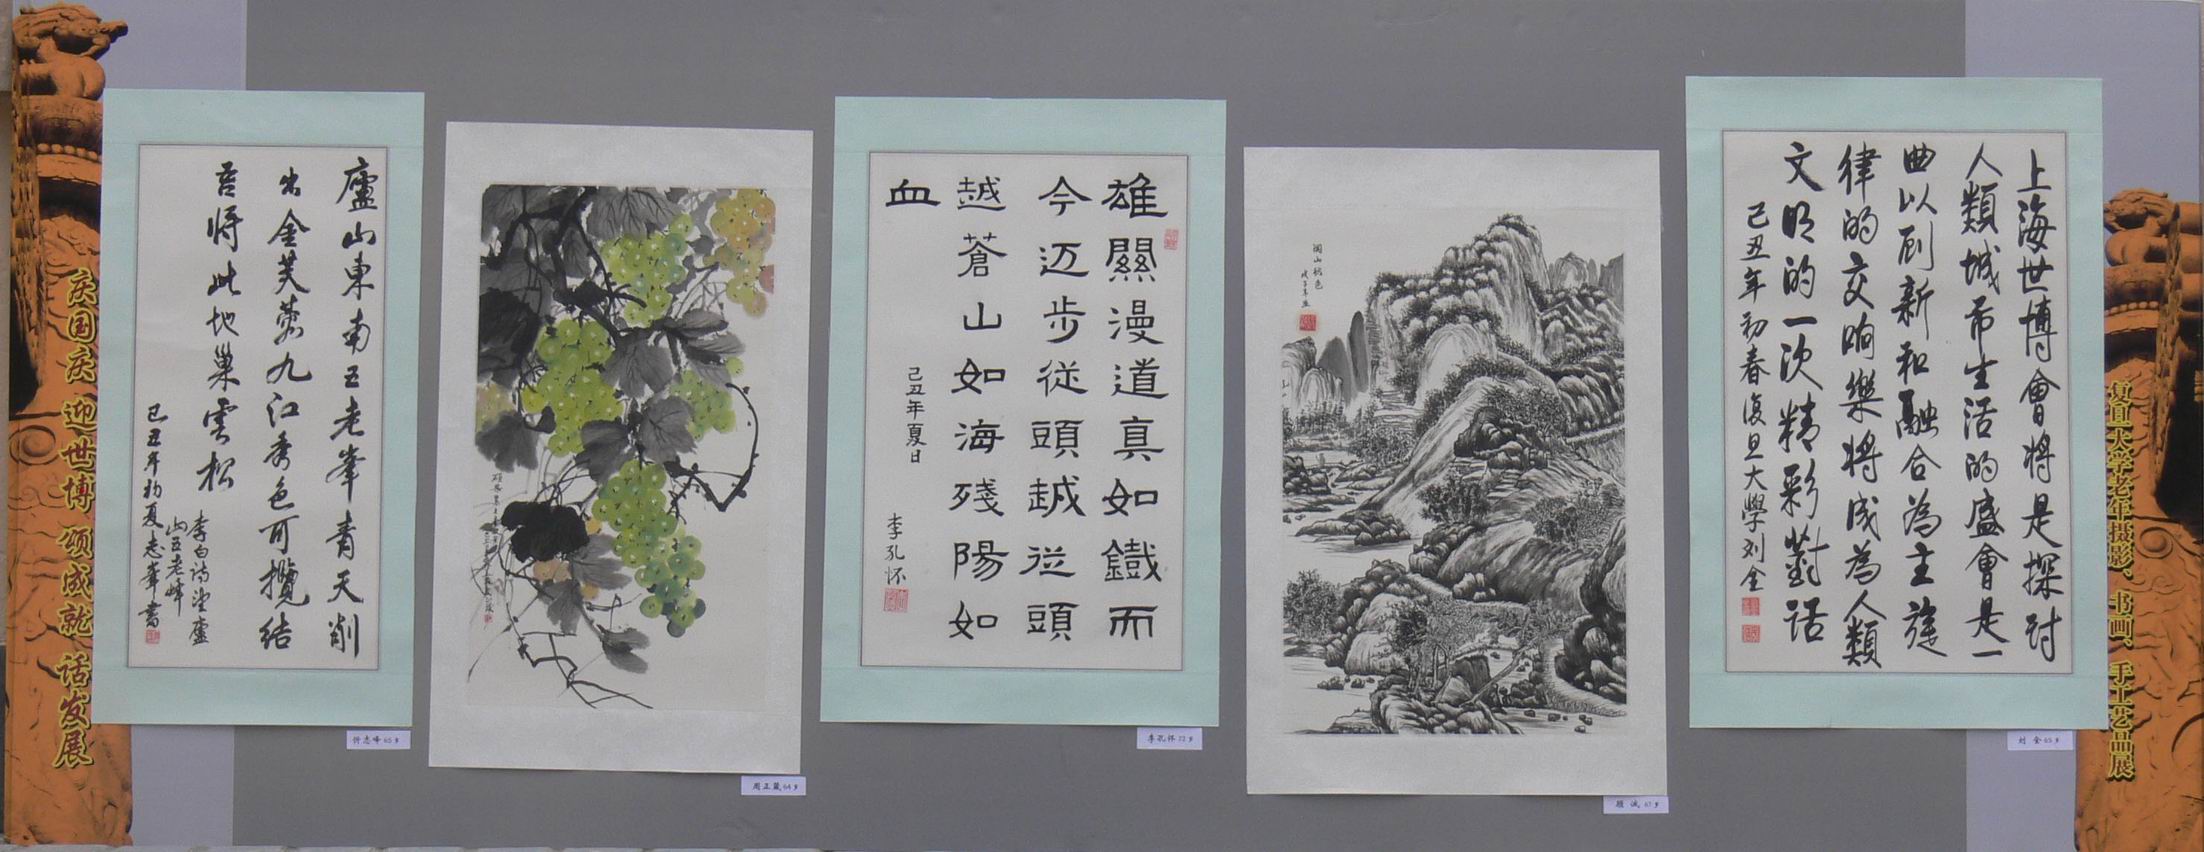 庆国庆 迎世博 颂成就 话发展
廬山東南五老峯青天削
出金芙蓉九江秀色可攬結
吾将此地巢雲松
李白诗望廬
山五老峰
己丑年初夏志峯書
雄關漫道真如鐵而
今迈步從頭越從頭
越蒼山如海殘陽如
血
己丑年夏日
李孔怀
李孔怀 72岁
周正葳 64岁
上海世博會将是探討
人類城市生活的盛會是一
曲以創新和融合為主旋
律的交响樂将成為人類
文明的一次精彩對話
己丑年初春復旦大學刘全
复旦大学老年摄影、书画、手工艺品展